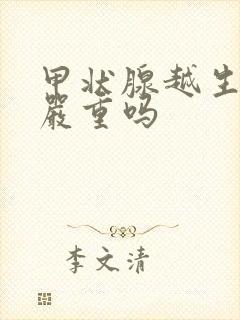 甲状腺越生
嚴重吗
李文清